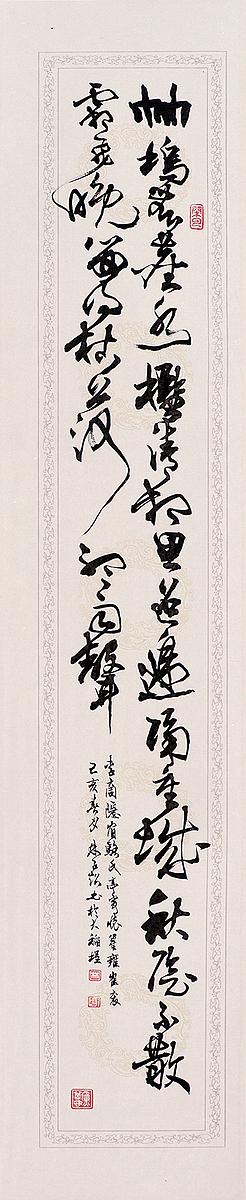 竹塢無塵水檻清相思迢遞隔重城秋陰不散
霜飛晚留得枯荷聽雨聲
李商隱宿駱氏亭寄懷崔雍崔袞
己亥春月